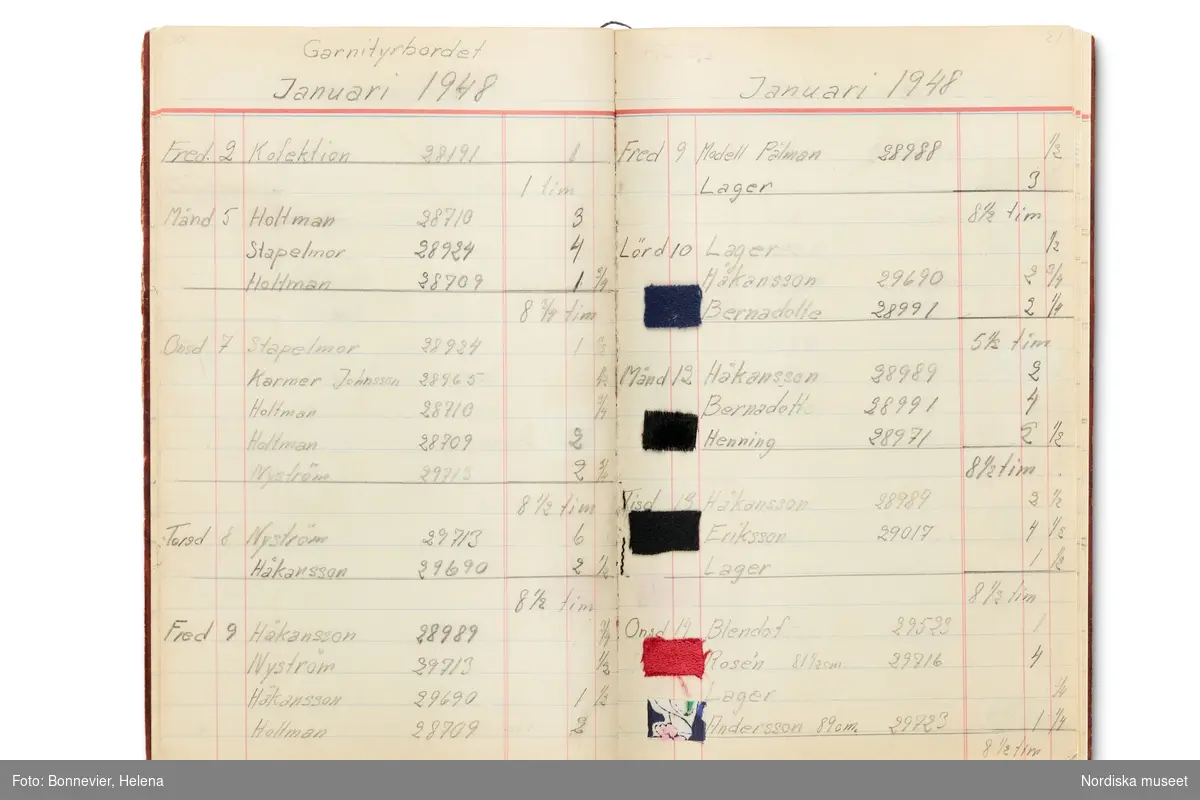 Garnityrbordet
Januari 1948
Fred. 2 Kolektion 28191 1
1 tim
Månd 5 Holtman 28710 3
Stapelmor 28924 4
Holtman 28709 1 3/4
8 3/4 tim
Onsd 7 Stapelmor 28924 1
Karmer Johnsson 28965 1/2
Holtman 28710 3/4
Holtman 28709 2
Nyström 29713 2 3/4
8 1/2 tim
Torsd 8 Nyström 29713 6
Håkansson 29690 2 1/2
8 1/2 tim
Fred 9 Håkansson 28989 3/4
Nyström 29713 1/2
Håkansson 29690 1 1/2
Holtman 28709 2
Januari 1948
Fred 9 Modell Pålman 28988 1/2
Lager 3
8 1/2 tim
Lörd 10 Lager 1/2
Håkansson 29690 2 3/4
Bernadotte 28991 2 1/4
5 1/2 tim
Månd 12 Håkansson 28989 2
Bernadott 28991 4
Henning 28971 2 1/2
8 1/2 tim
Tisd 13 Håkansson 28989 2 1/2
Eriksson 29017 4 1/2
Lager 1 1/2
8 1/2 tim
Onsd Blendof 29523 1
Rosén 81 1/2 cm 29716 4
Lager
Andersson 89 cm. 29723 1 1/4
8 1/2 tim
Foto: Bonnevier, Helena
Nordiska museet